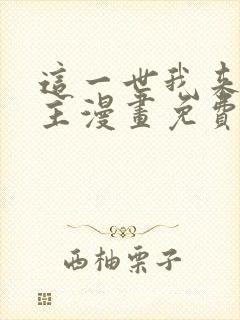 這一世我來
主漫畫免費
西柚栗子